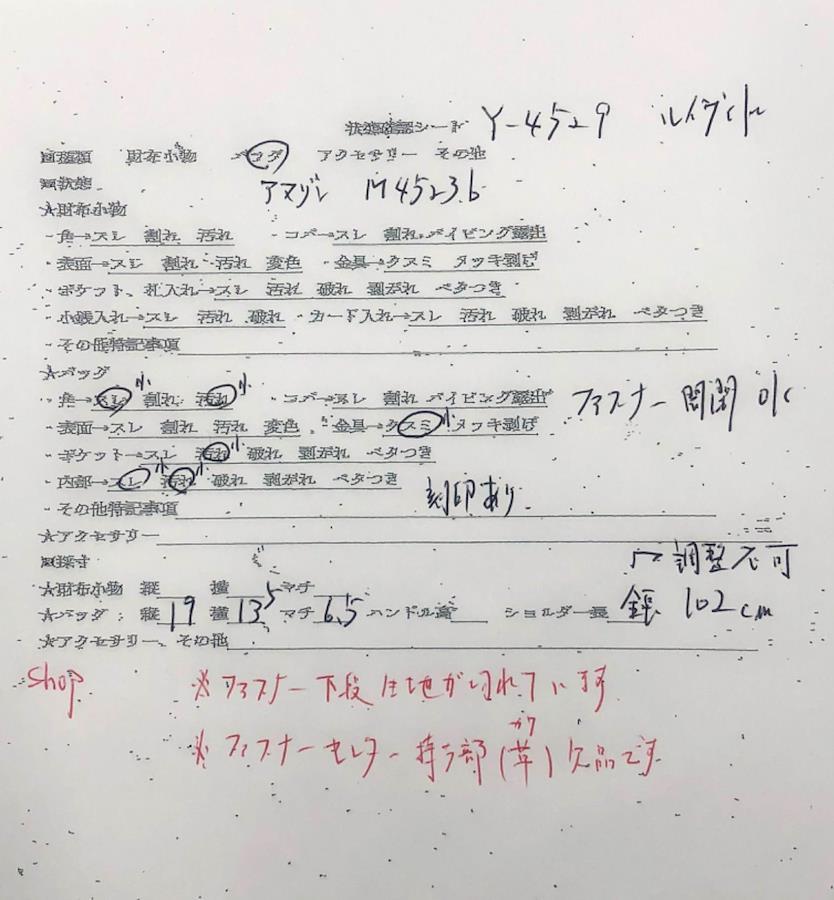 状態確認シート Y-4529 ルイヴィトン
□種類 財布小物 バッグ アクセサリー その他
□状態 アマゾン M45236
★財布小物
・角→スレ 割れ 汚れ ・コバ→スレ 割れ パイピング露出
・表面→スレ 割れ 汚れ 変色 ・金具→クスミ メッキ剥げ
・ポケット、札入れ→スレ 汚れ 破れ 剥がれ ベタつき
・小銭入れ→スレ 汚れ 破れ ・カード入れ→スレ 汚れ 破れ 剥がれ ベタつき
・その他特記事項
★バッグ
・角→スレ小 割れ 汚れ小 ・コバ→スレ 割れ パイピング露出 ファスナー開閉 OK
・表面→スレ 割れ 汚れ 変色 ・金具→クスミ小 メッキ剥げ
・ポケット→スレ 汚れ小 破れ 剥がれ ベタつき
・内部→スレ小 汚れ小 破れ 剥がれ ベタつき
・その他特記事項 刻印あり
★アクセサリー
□採寸 調整不可
★財布小物 縦 横 マチ
★バッグ 縦 19 横 13.5 マチ 6.5 ハンドル高 ショルダー長 全長 102cm
★アクセサリー、その他
Shop ※ファスナー下段生地が切れています
※ファスナーセンター持つ部(革)欠品です
カワ